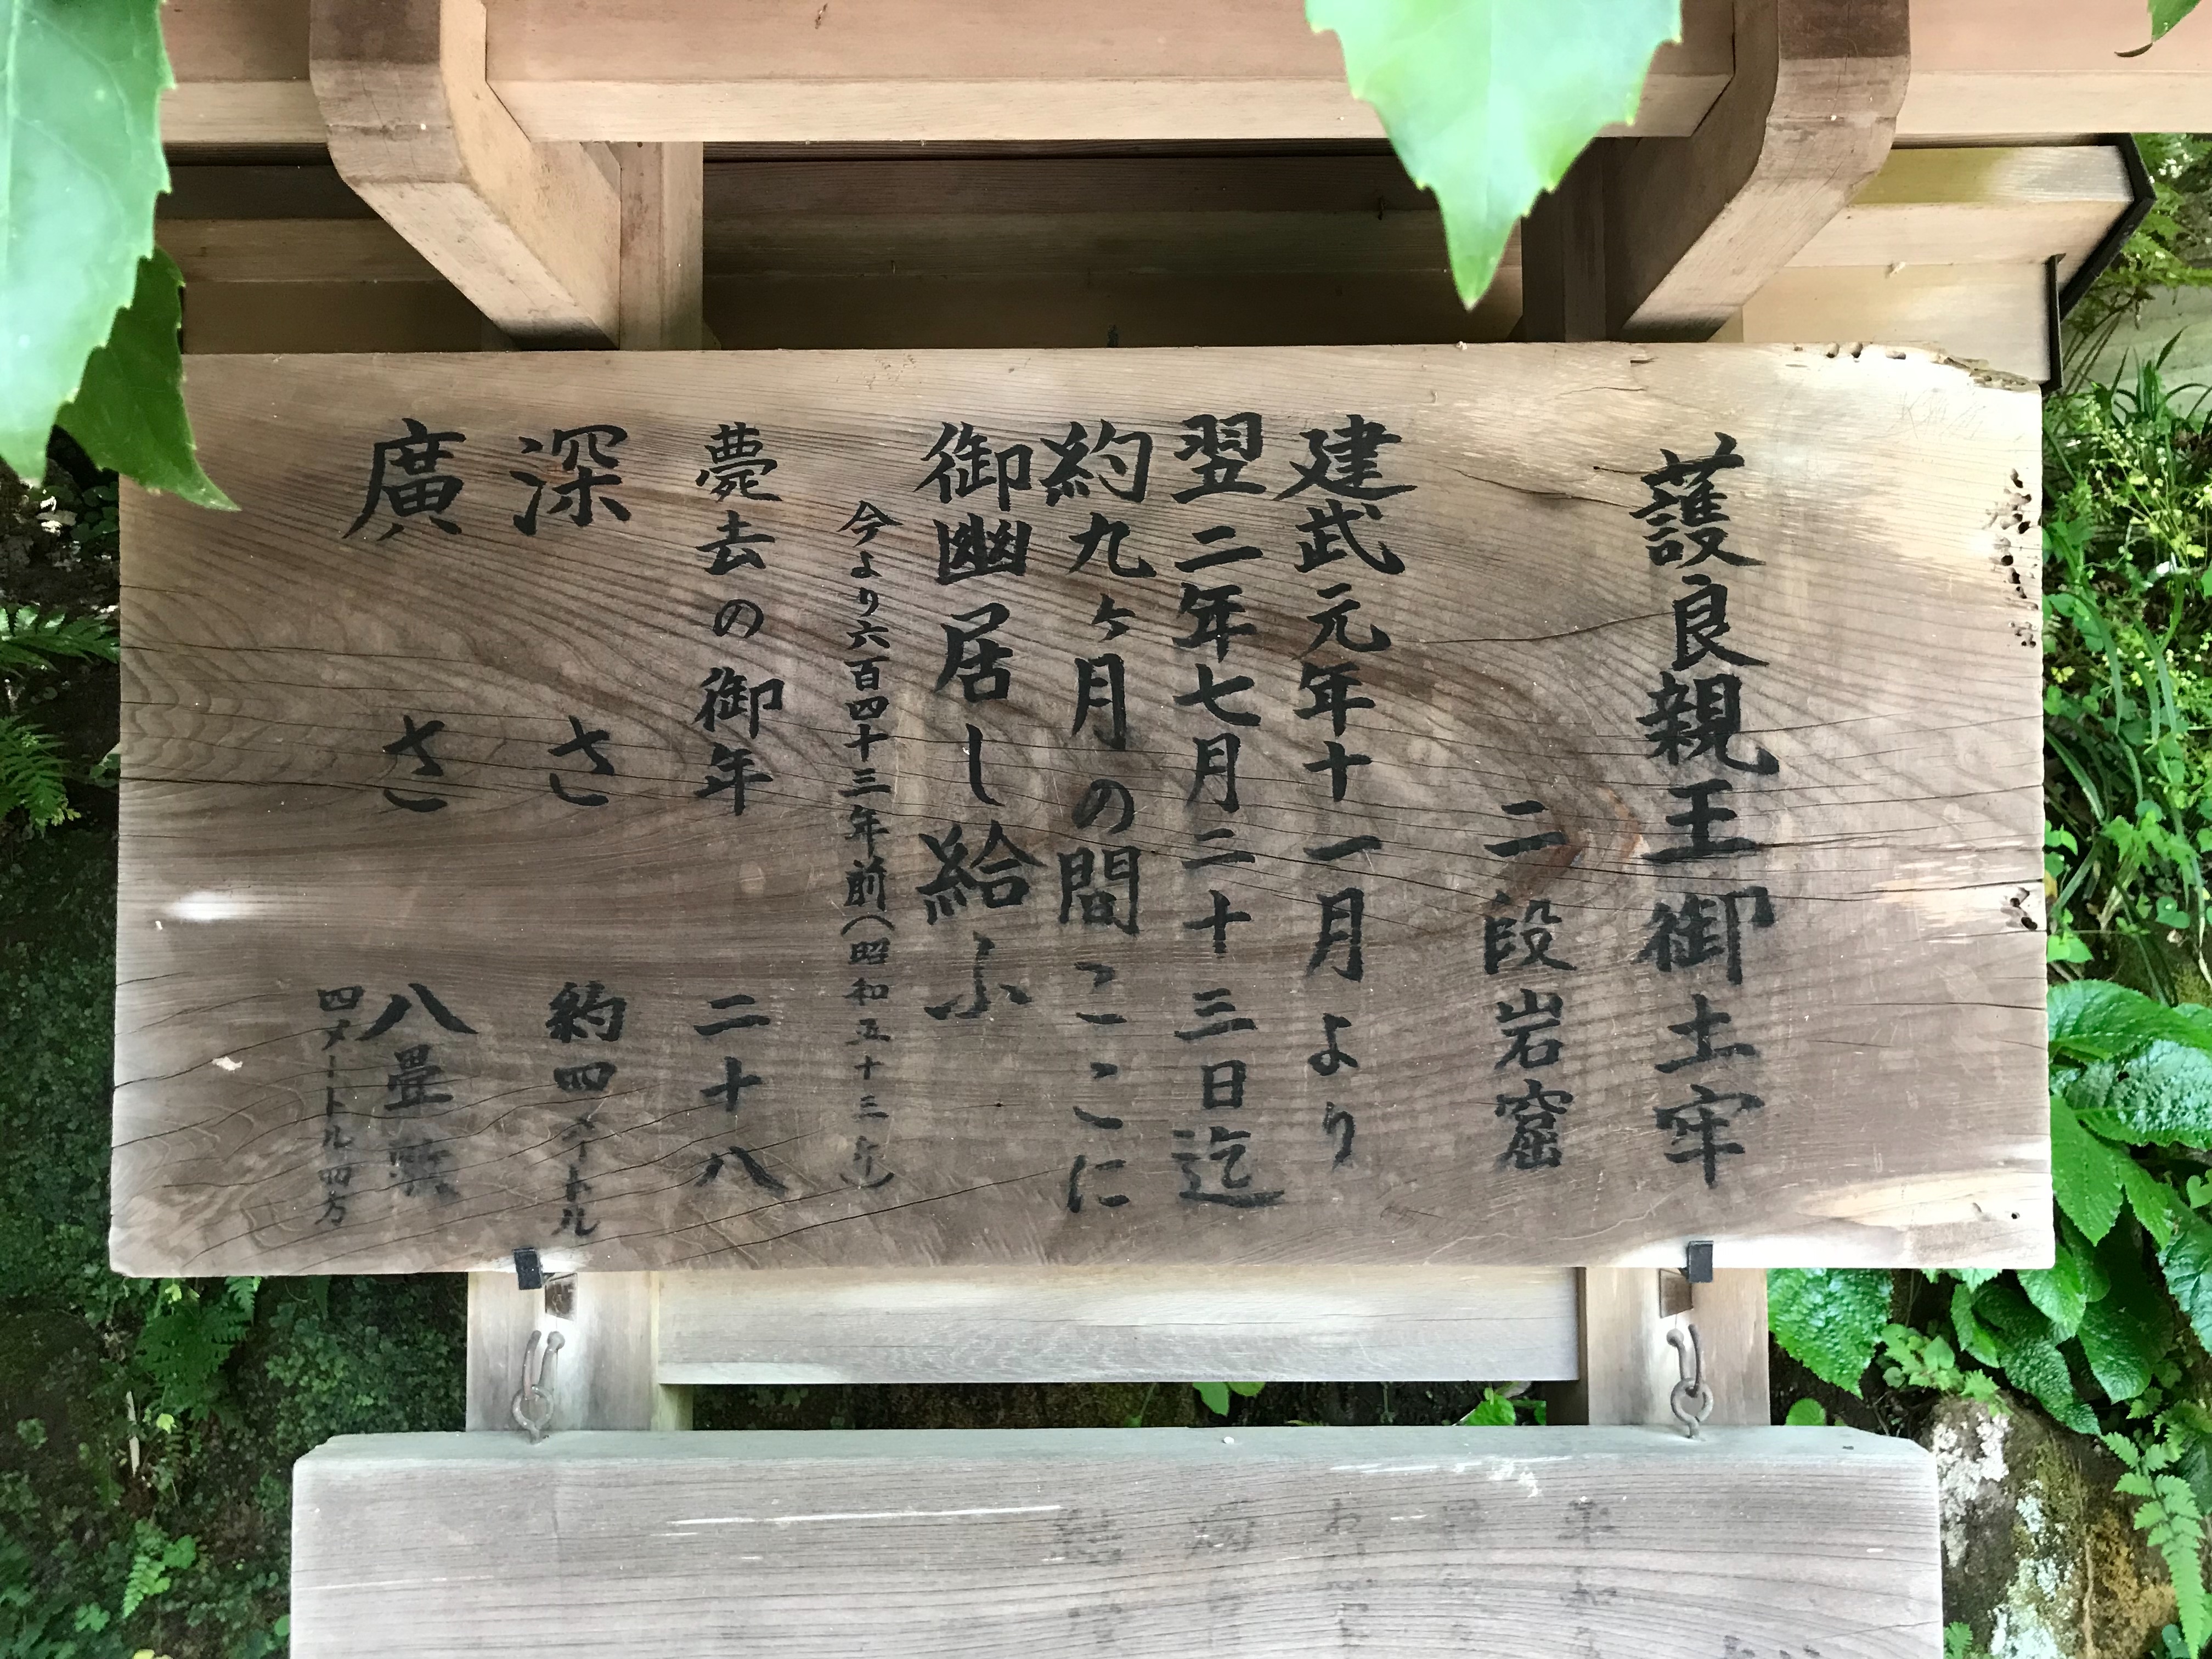 護良親王御土牢
二段岩窟
建武元年十一月より
翌二年七月二十三日迄
約九ヶ月の間ここに
御幽居し給ふ
今より六百四十三年前(昭和五十三年)
薨去の御年 二十八
深さ 約四メートル
廣さ 八畳敷
四メートル四方